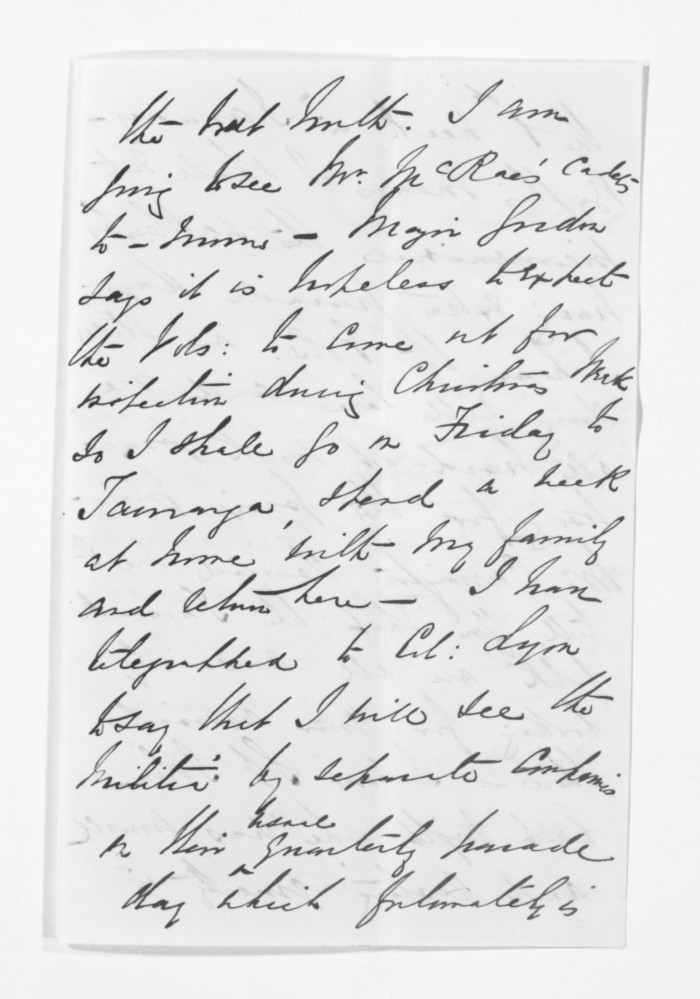 the next month. I am
going to see Mr. McRae's Cadets
to-morrow - Major Gordon
says it is useless to expect
the Vols: to come out for
inspection during Christmas week
so I shall go on Friday to
Tauranga, spend a week
at home with my family
and return here - I have
telegraphed to Col: Lyon
to say that I will see the
Militia by separate Companies
on their usual quarterly parade
day which fortunately is